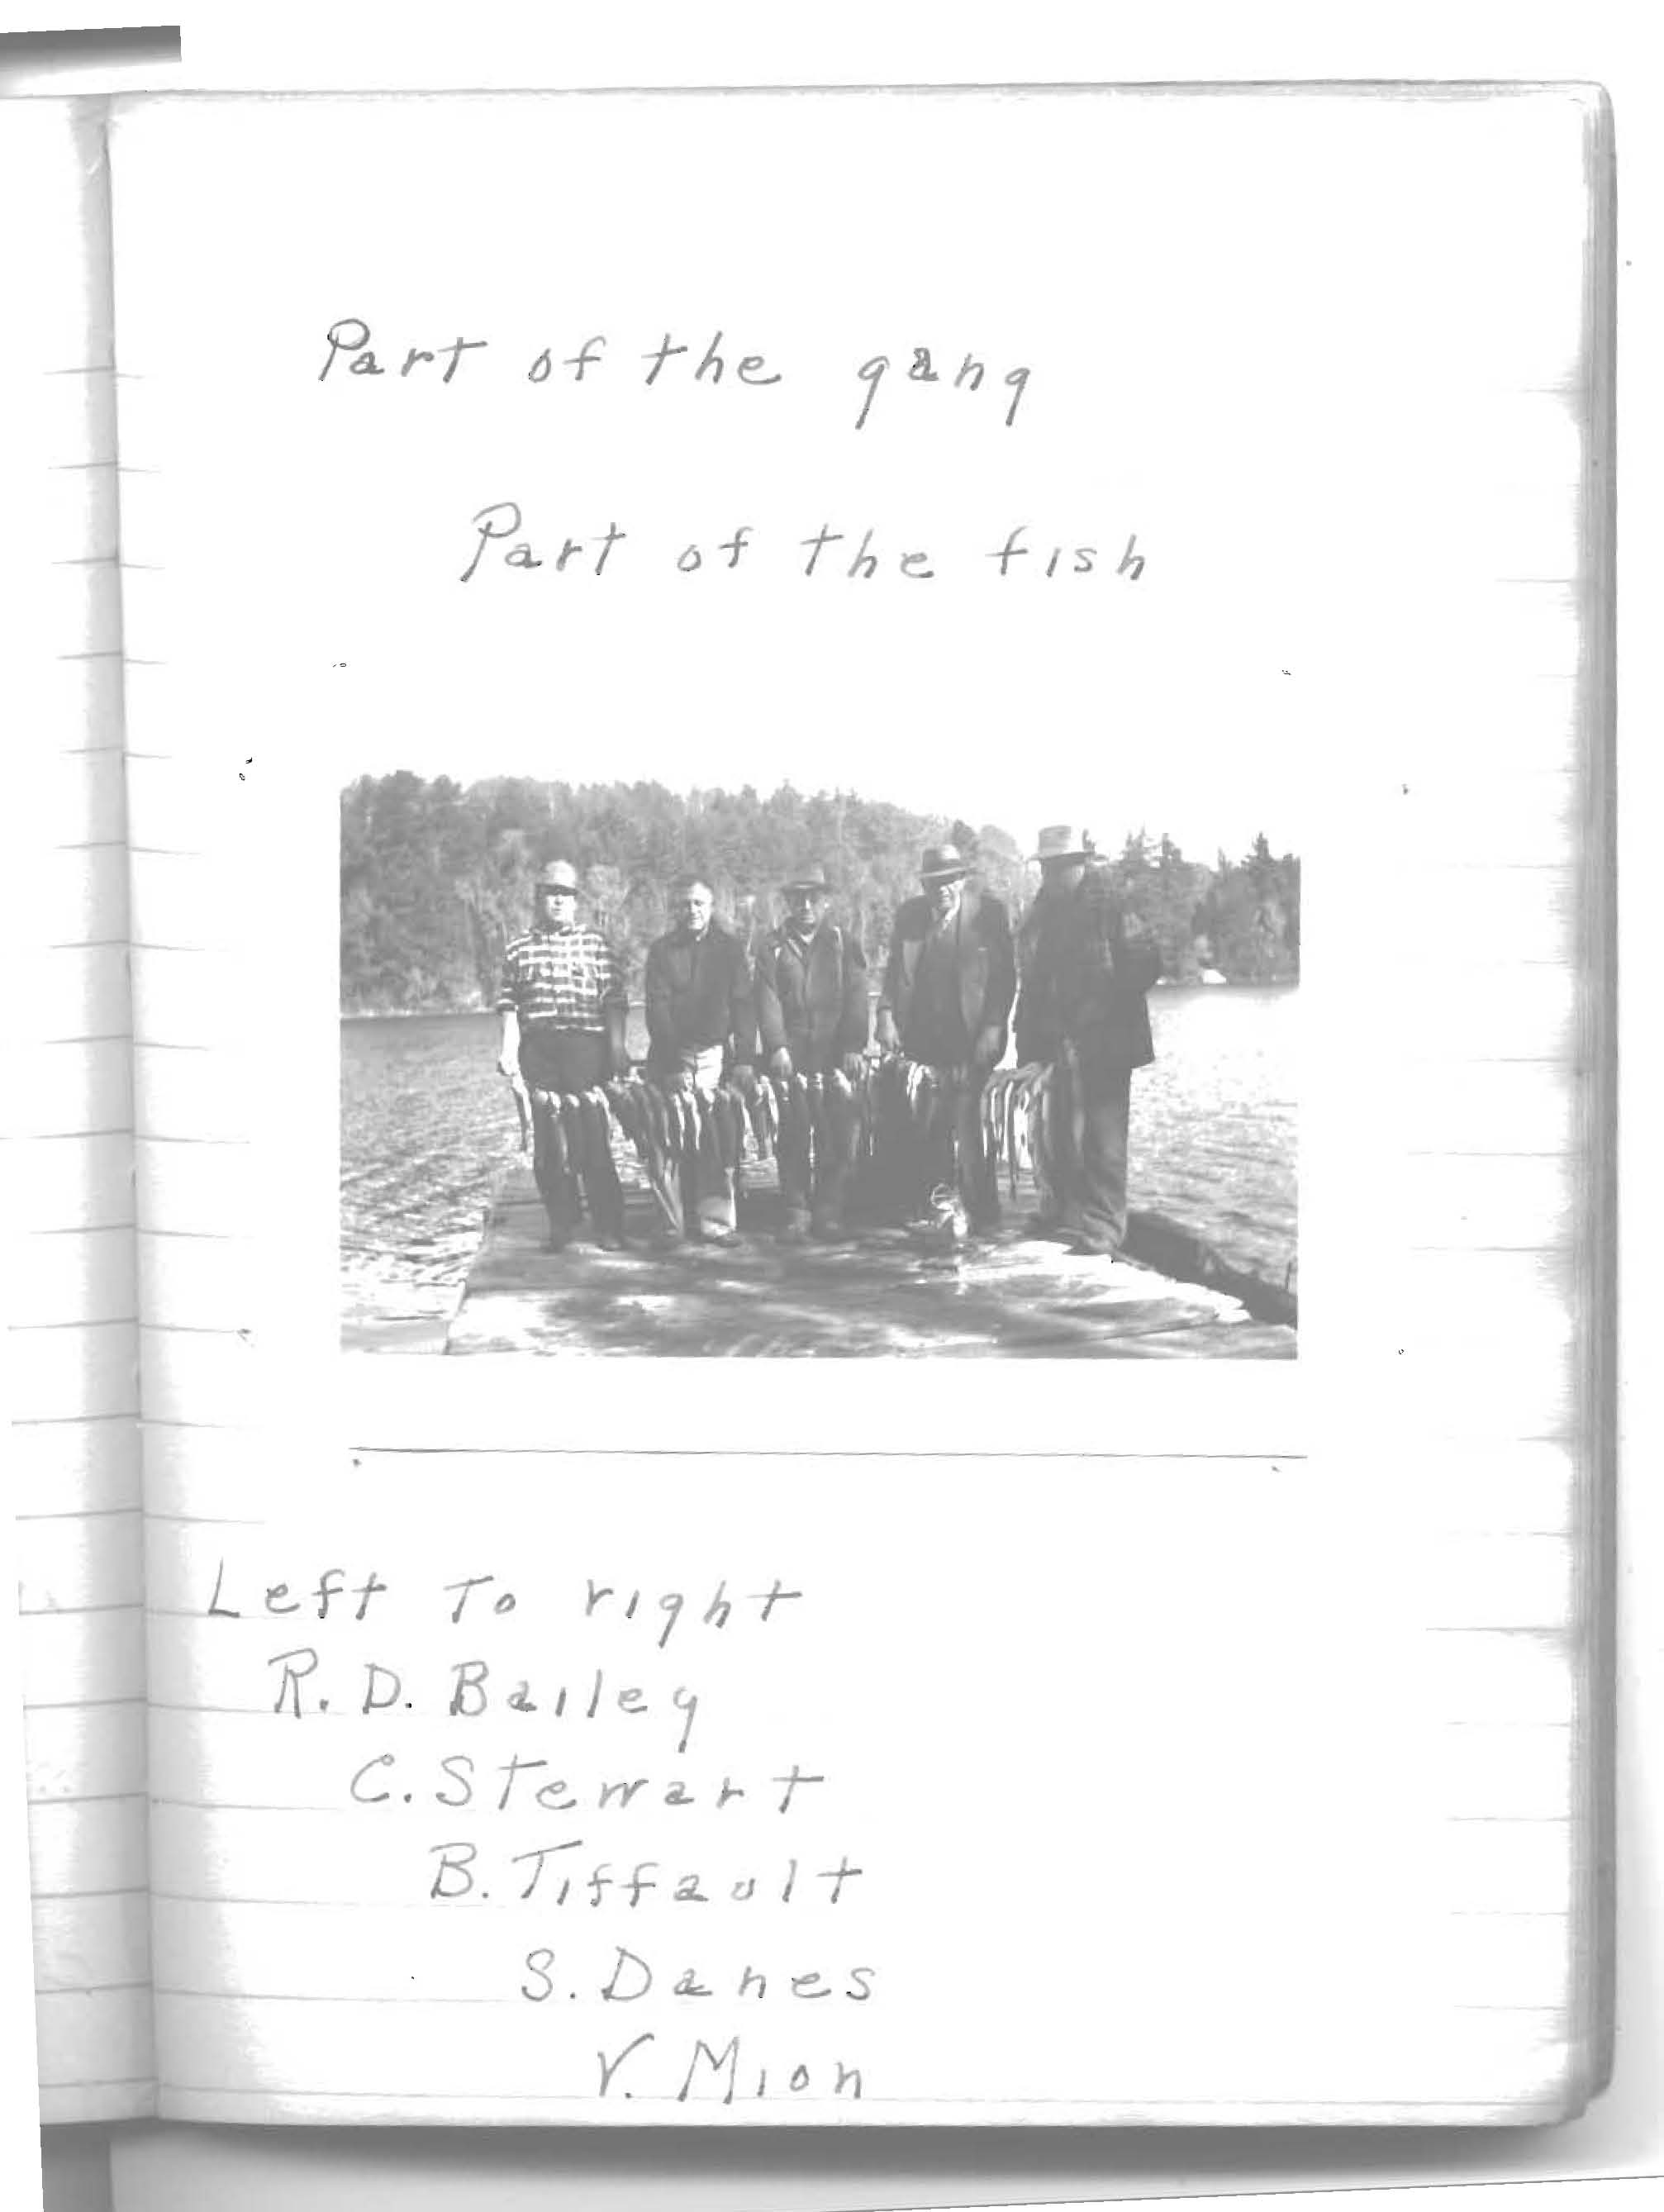 Part of the gang
Part of the fish
Left To right
R. D. Bailey
C. Stewart
B. Tiffault
S. Danes
V. Mion